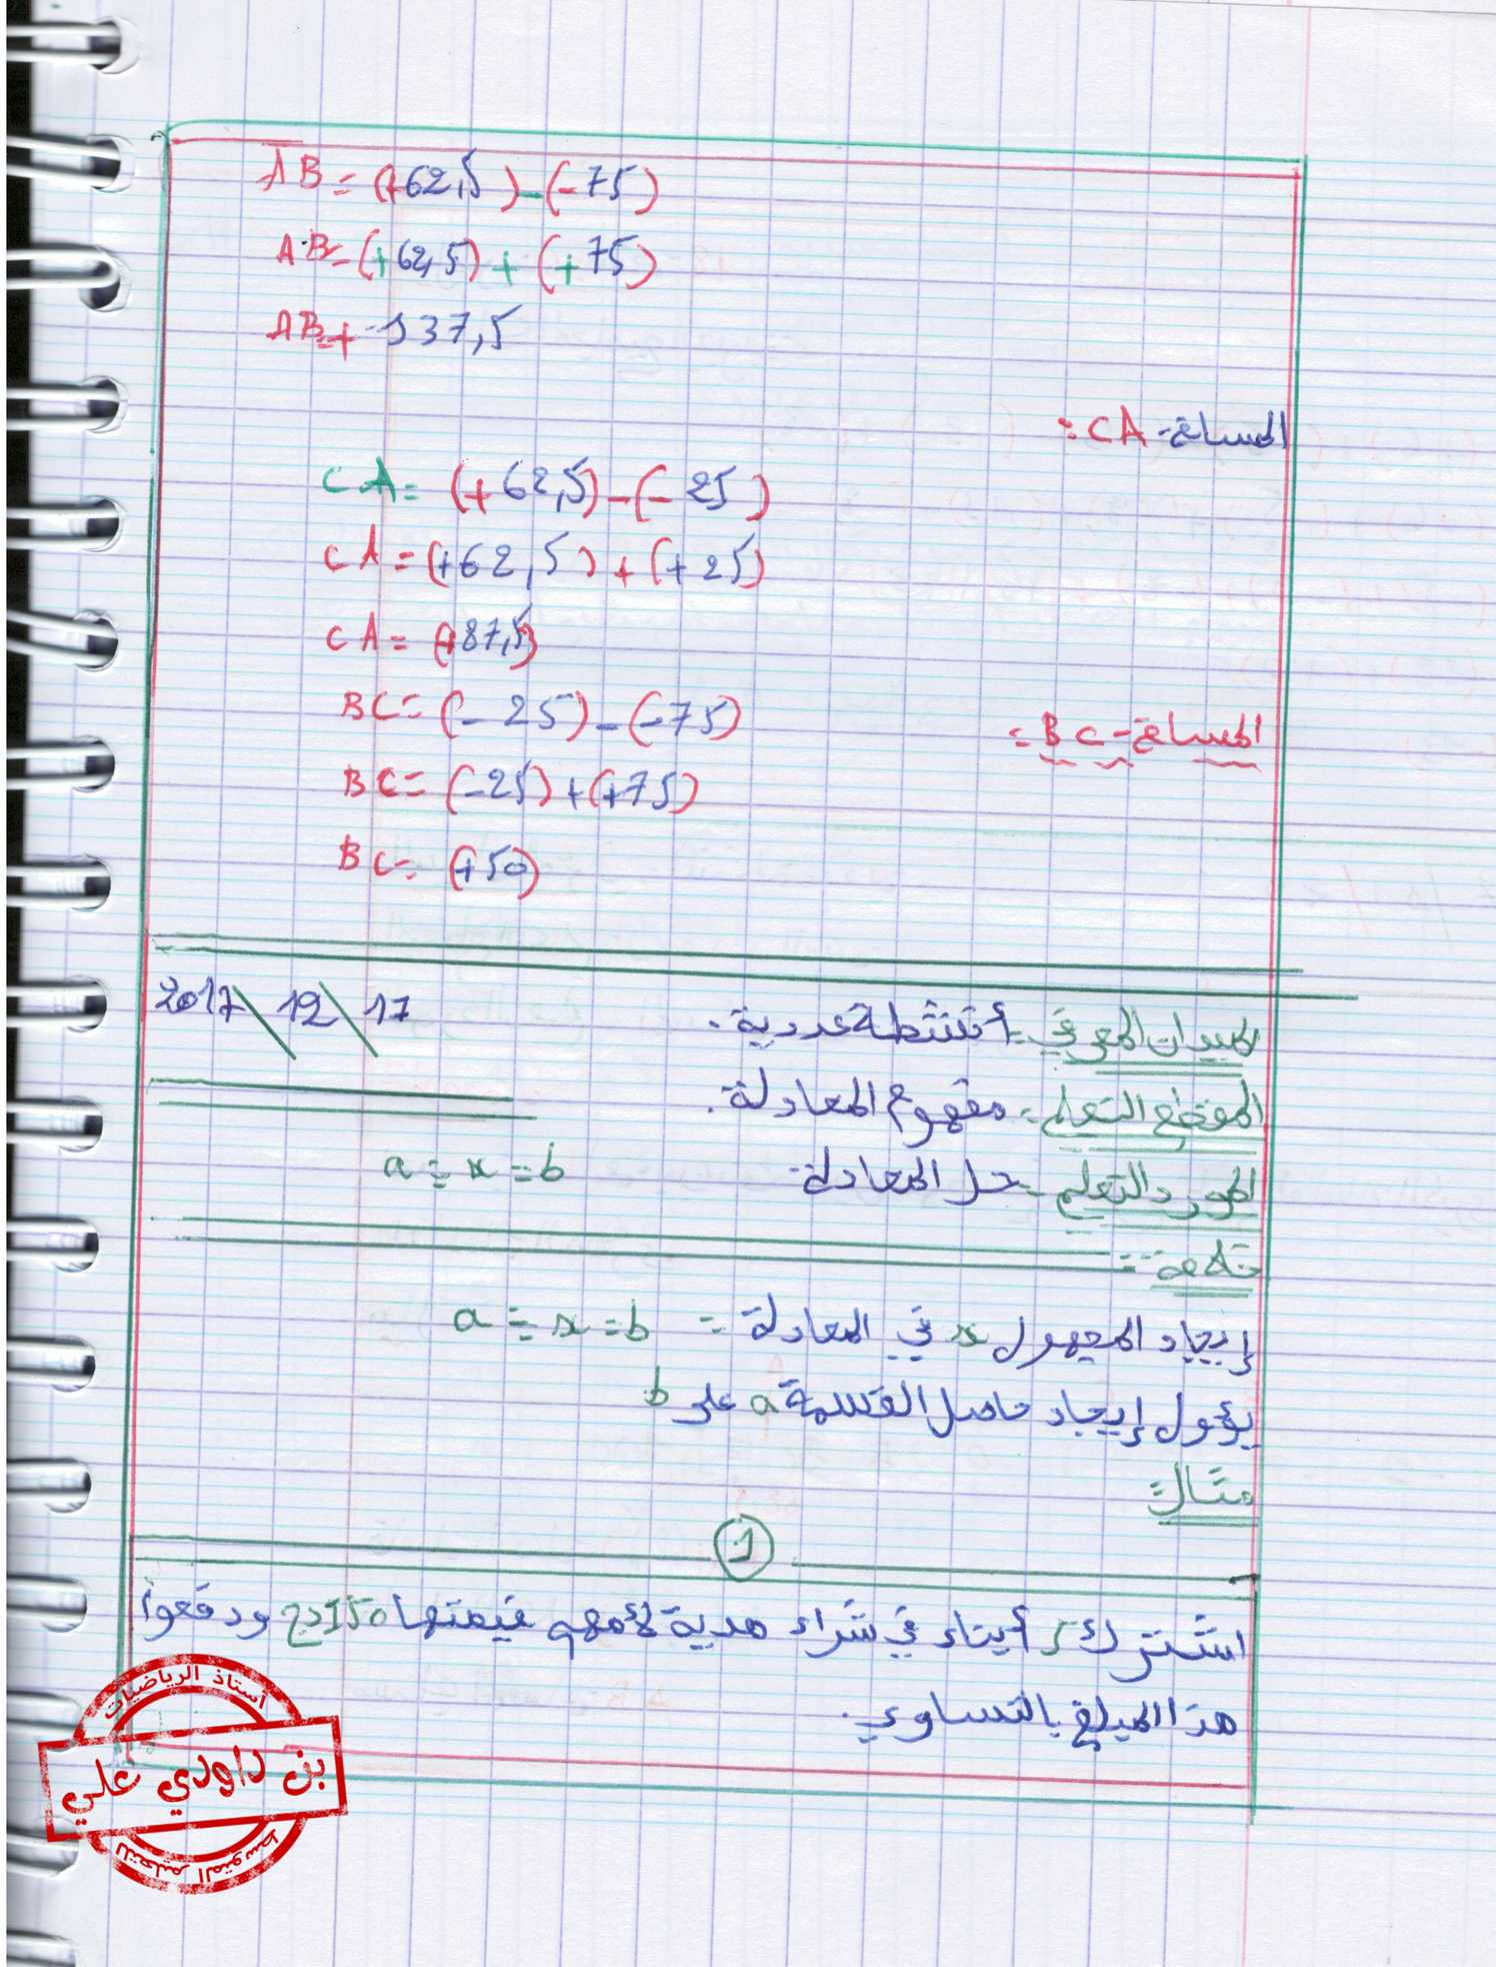 AB = (+62,5) - (-75)
AB = (+62,5) + (+75)
AB = + 137,5
المسافة CA:
CA = (+62,5) - (-25)
CA = (+62,5) + (+25)
CA = (+87,5)
المسافة BC:
BC = (-25) - (-75)
BC = (-25) + (+75)
BC = (+50)
الميدان المعرفي: أنشطة عددية. 17 \ 12 \ 2017
المقطع التعلمي: مفهوم المعادلة.
المورد التعلمي: حل المعادلة a ÷ x = b
خلاصة:
إيجاد المجهول x في المعادلة: a ÷ x = b
يؤول إيجاد حاصل القسمة a على b
مثال:
1
اشترك 5 أبناء في شراء هدية لأمهم قيمتها 150 دج ودفعوا
هذا المبلغ بالتساوي.
أستاذ الرياضيات
بن داودي علي
للتعليم المتوسط